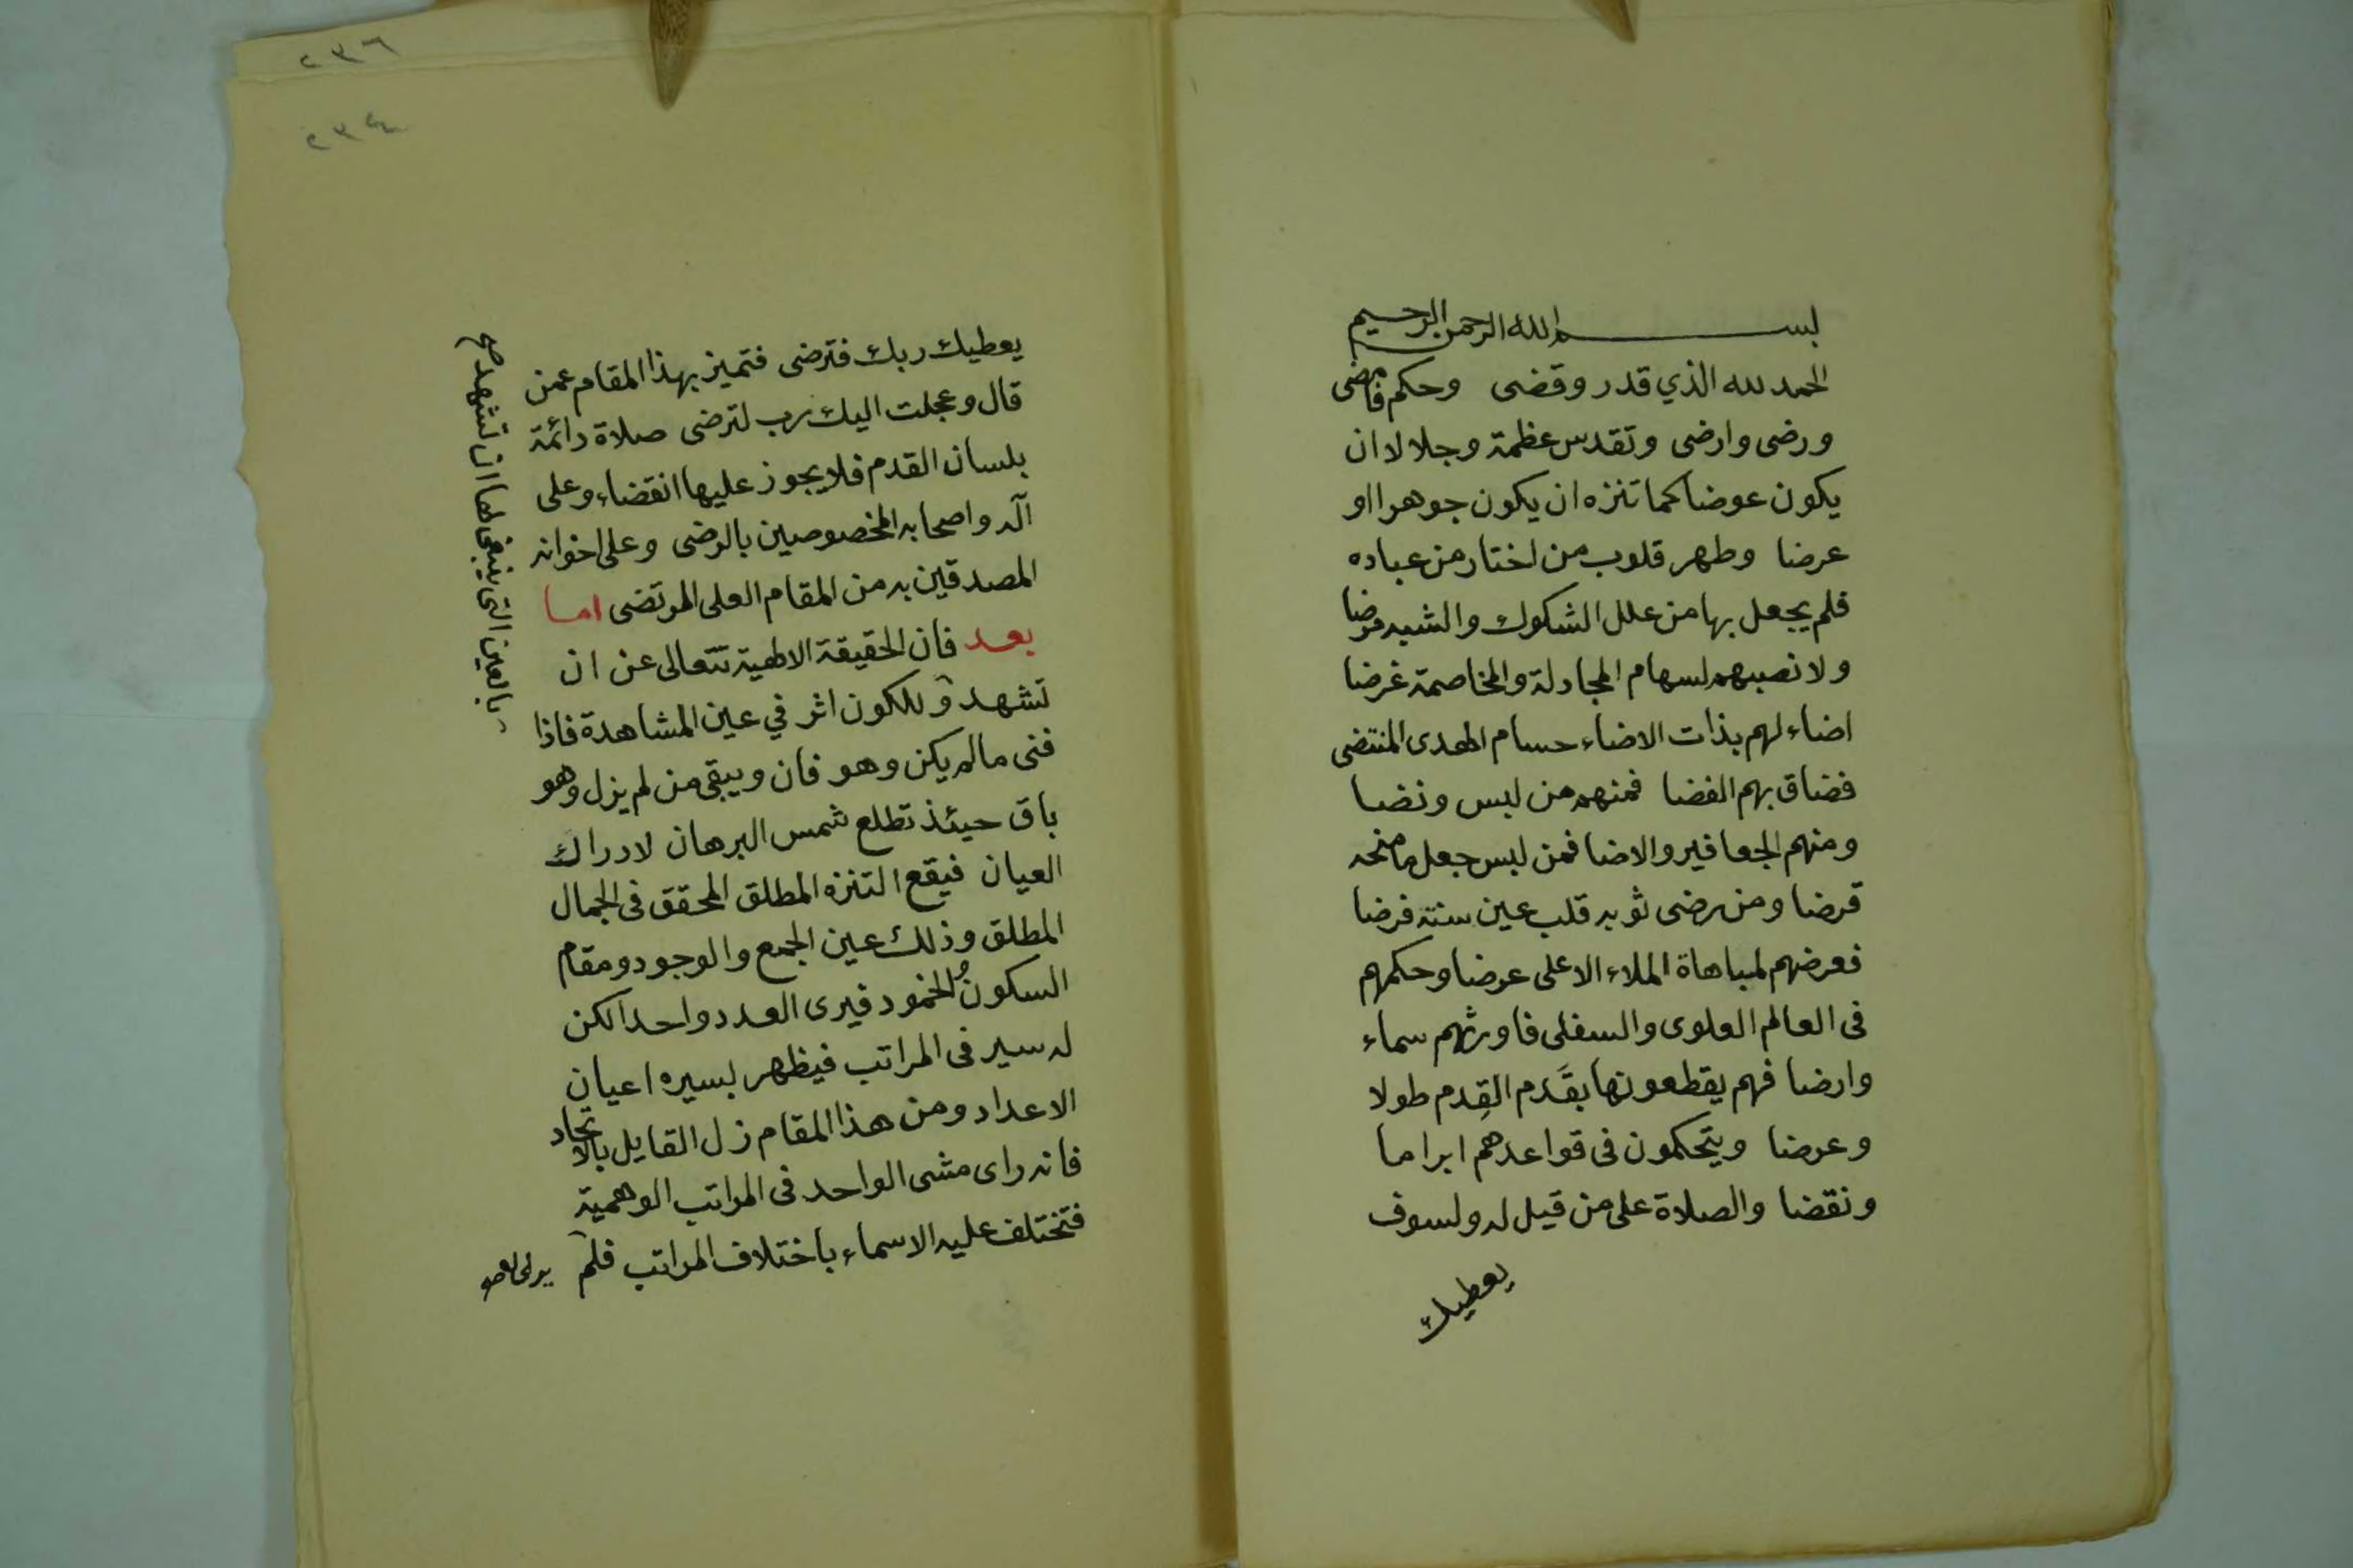 بسم الله الرحمن الرحيم
الحمد لله الذي قدر وقضى وحكم فامضى
ورضى وارضى وتقدس عظمة وجلالا ان
يكون عوضا كما تنزه ان يكون جوهرا او
عرضا وطهر قلوب من اختار من عباده
فلم يجعل بها من علل الشكوك والشبه مرضا
ولا نصبهم لسهام المجادلة والمخاصمة غرضا
اضاء لهم بذات الاضاء حسام الهدى المنتضى
فضاق بهم الفضا فمنهم من لبس ونضا
ومنهم الجعافير والاضا فمن لبس جعل ما منحه
قرضا ومن رضى ثوبه قلب عين سنته فرضا
فعرضهم لمباهاة الملاء الاعلى عرضا وحكمهم
فى العالم العلوى والسفلى فاورثهم سماء
وارضا فهم يقطعونها بقَدم القِدم طولا
وعرضا ويتحكمون فى قواعدهم ابراما
ونقضا والصلاة على من قيل له ولسوف
يعطيك
٢٣٦
٢٣٤
يعطيك ربك فترضى فتميز بهذا المقام عمن
قال وعجلت اليك رب لترضى صلاة دائمة
بلسان القدم فلا يجوز عليها انقضاء وعلى
آله واصحابه المخصوصين بالرضى وعلى اخوانه
المصدقين به من المقام العلى المرتضى اما
بعد فان الحقيقة الالهية تتعالى عن ان
تشهد وللكون اثر في عين المشاهدة فاذا
فنى مالم يكن وهو فان ويبقى من لم يزل وهو
باق حيئذ تطلع شمس البرهان لادراك
العيان فيقع التنزه المطلق المحقق فى الجمال
المطلق وذلك عين الجمع والوجود ومقام
السكون والخمود فيرى العدد واحدا لكن
له سير فى المراتب فيظهر بسيره اعيان
الاعداد ومن هذا المقام زل القايل بالاتحاد
فانه راى مشى الواحد فى المراتب الوهمية
فتختلف عليه الاسماء باختلاف المراتب فلم
بالعين التى ينبغى لها ان تشهد صح